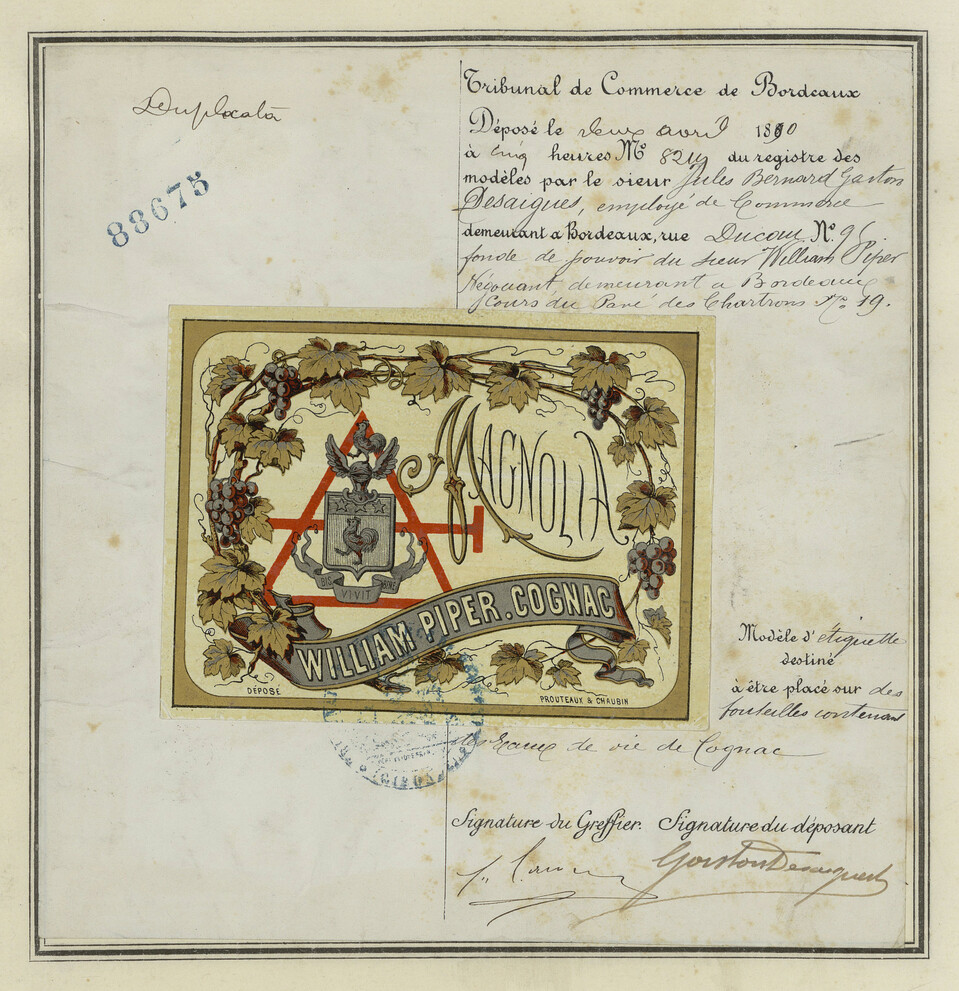 Duplicata
88675
Tribunal de Commerce de Bordeaux
Déposé le deux avril 1880
à cinq heures No du registre des
modèles par le sieur Jules Bernard Gaston
Desaigues, employé de Commerce
demeurant à Bordeaux, rue Ducau No
fondé de pouvoir du sieur William Piper
Négociant, demeurant a Bordeaux
Cours du Pavé des Chartrons No 19.
MAGNOLIA
BIS VIVIT BENE
WILLIAM PIPER. COGNAC
DÉPOSÉ
PROUTEAUX & CHAUBIN
Modèle d'étiquette
destiné
à être placé sur des
bouteilles contenant
des Eaux de vie de Cognac
Signature du Greffier. Signature du déposant
Gaston Desaigues